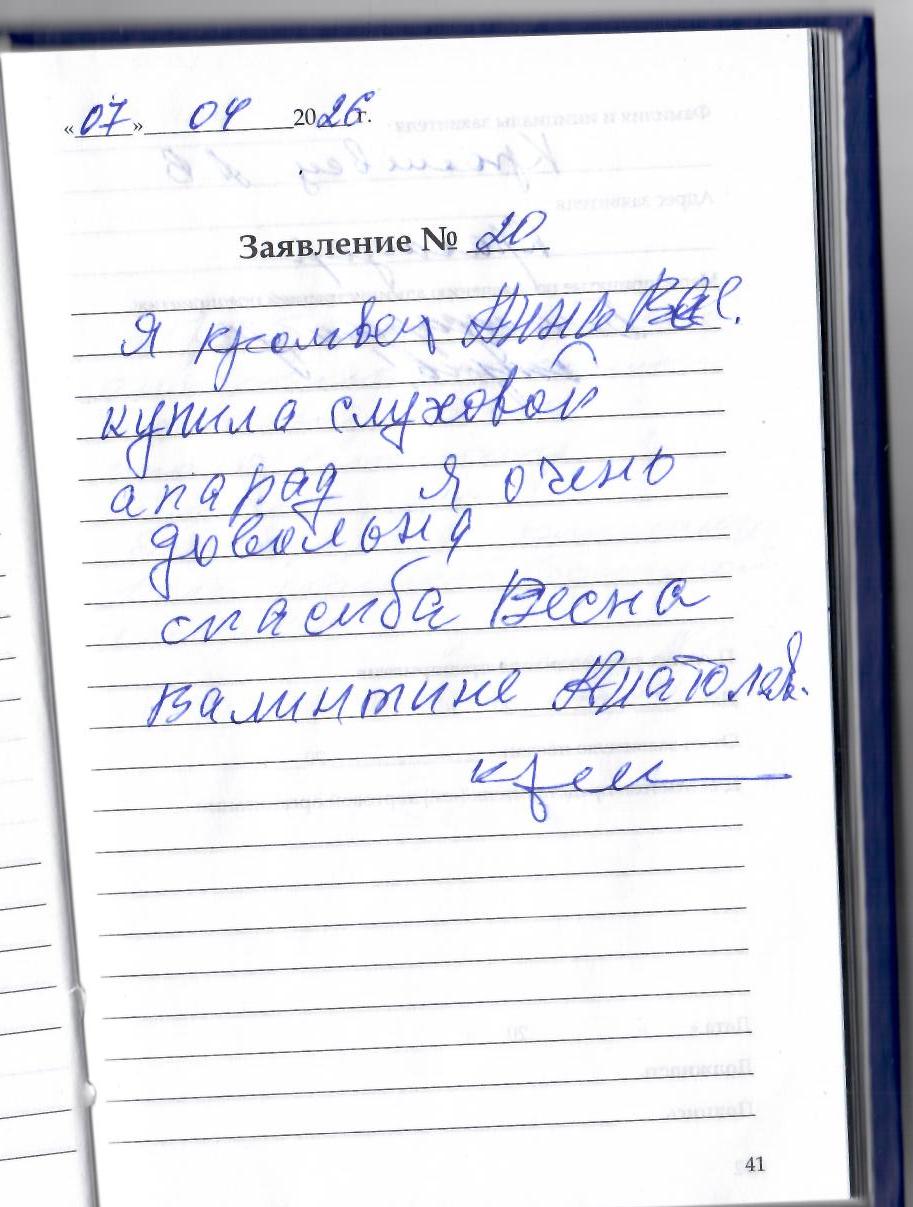 «07» 04 2026г.
Заявление № 20
Я Анна Вас.
купила слуховой
апарад я очень
довольна
спасиба Весна
Валинтине Анатольев.
41